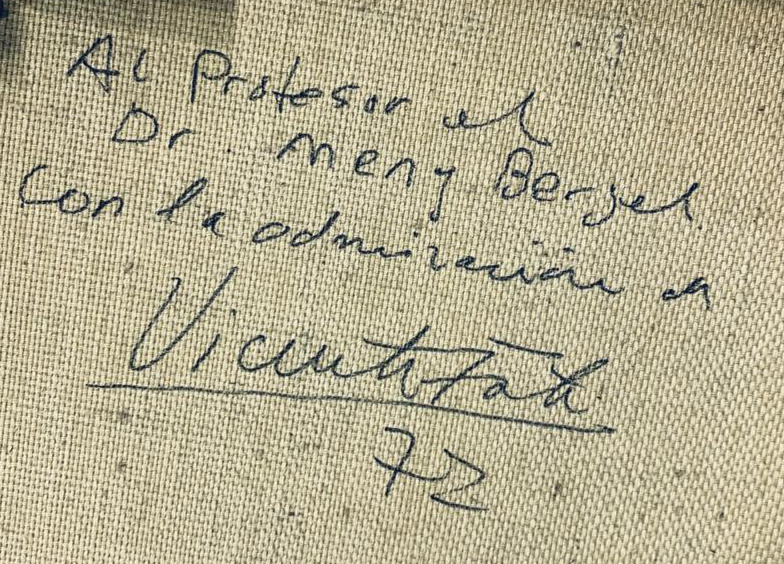 Al Profesor el
Dr. Meny Bergel
con la admiración de
Vicente Forte
72